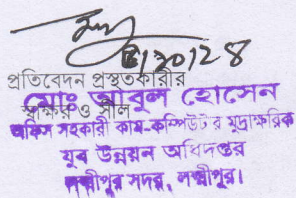 প্রতিবেদন প্রস্তুতকারীর
স্বাক্ষর ও সীল
মোঃ আবুল হোসেন
অফিস সহকারী কাম-কম্পিউটার মুদ্রাক্ষরিক
যুব উন্নয়ন অধিদপ্তর
লক্ষ্মীপুর সদর, লক্ষ্মীপুর।